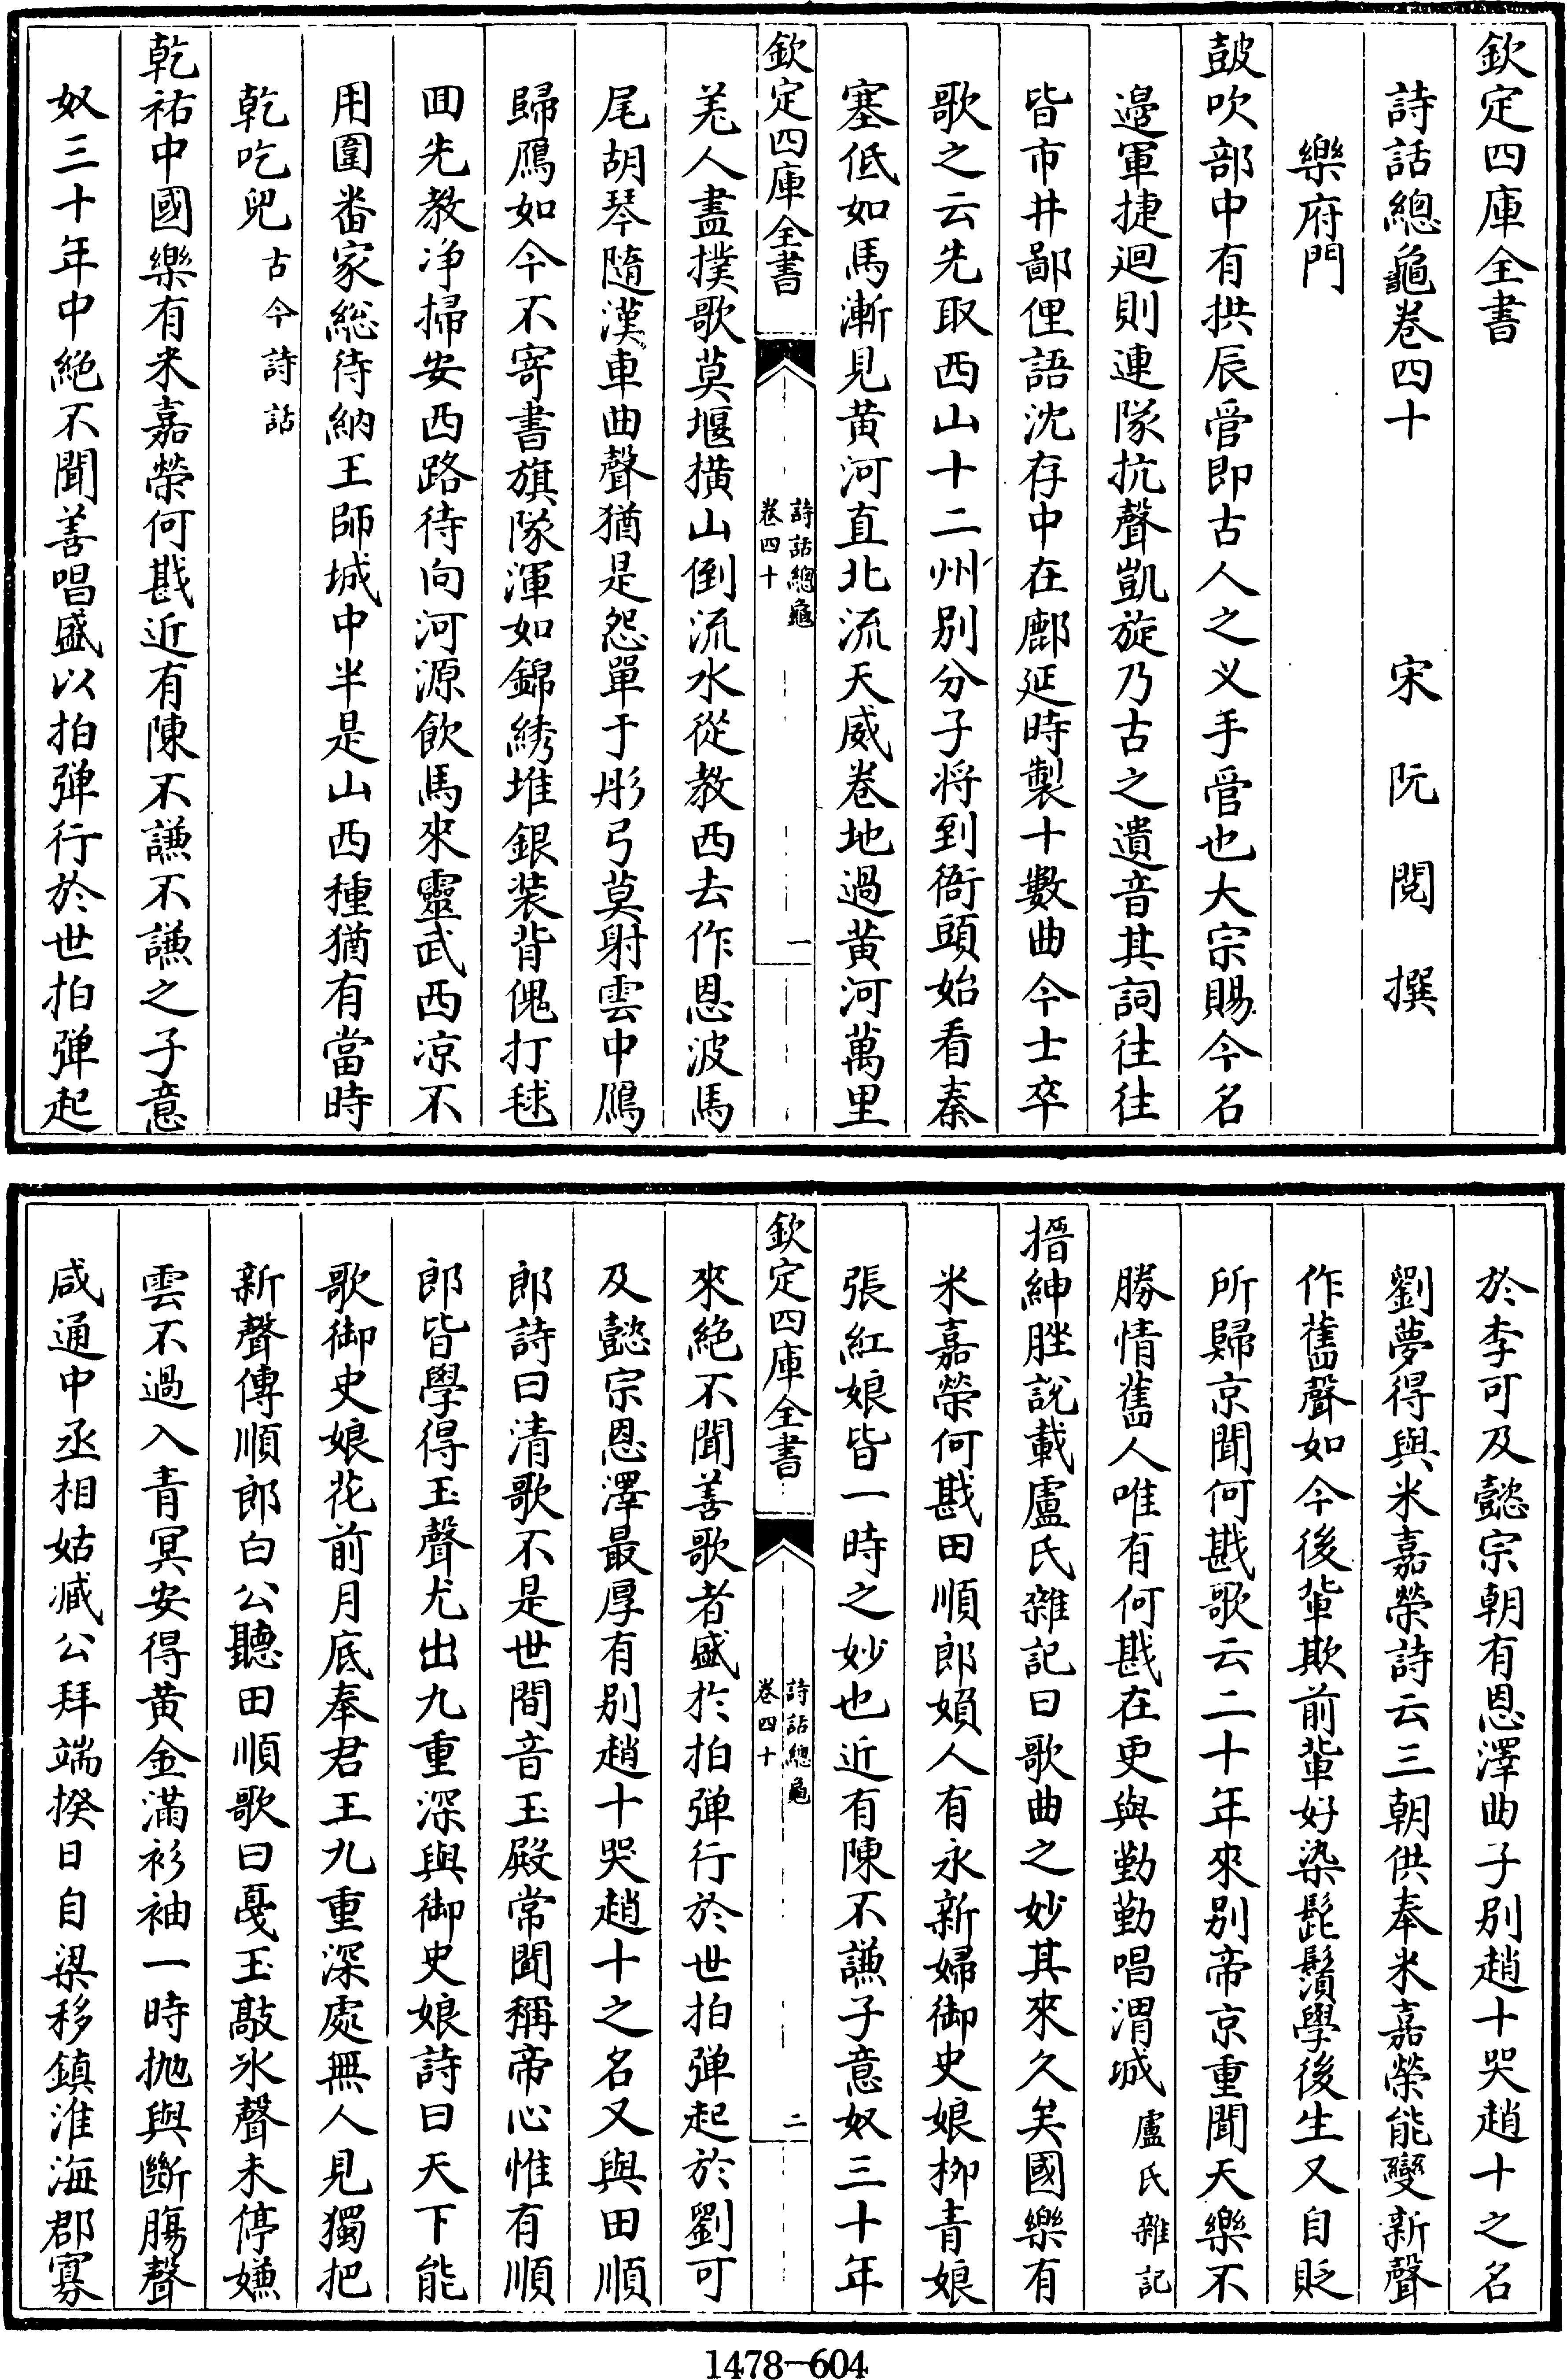 欽定四庫全書
詩話總龜卷四十
宋阮閱撰
樂府門
皷吹部中有拱辰管即古人之义手管也大宗賜今名
邉軍捷迴則連隊抗聲凱旋乃古之遺音其詞往往
皆市井鄙俚語沈存中在鄜延時製十數曲令士卒
歌之云先取西山十二州别分子将到衙頭始看秦
塞低如馬漸見黄河直北流天威卷地過黄河萬里
欽定四庫全書
詩話總龜
卷四十
一
羌人盡撲歌莫堰横山倒流水從教西去作恩波馬
尾胡琴隨漢車曲聲猶是怨單于彤弓莫射雲中鴈
歸鴈如今不寄書旗隊渾如錦綉堆銀装背傀打毬
回先教净掃安西路待向河源飲馬來靈武西凉不
用圍畨家総待納王師城中半是山西種猶有當時
乾吃兒古今詩話
乾祐中國樂有米嘉榮何戡近有陳不謙不謙之子意
奴三十年中絶不聞善唱盛以拍弹行於世拍弹起
於李可及懿宗朝有恩澤曲子别趙十哭趙十之名
劉夢得與米嘉榮詩云三朝供奉米嘉榮能變新聲
作舊聲如今後軰欺前軰好染髭鬚學後生又自貶
所歸京聞何戡歌云二十年來别帝京重聞天樂不
勝情舊人唯有何戡在更與勤勤唱渭城盧氏雜記
搢紳脞說載盧氏雜記曰歌曲之妙其來久矣國樂有
米嘉榮何戡田順郎媍人有永新婦御史娘栁青娘
張紅娘皆一時之妙也近有陳不謙子意奴三十年
欽定四庫全書
詩話總龜
卷四十
二
來絶不聞善歌者盛於拍弹行於世拍弹起於劉可
及懿宗恩澤最厚有别趙十哭趙十之名又與田順
郎詩曰清歌不是世間音玉殿常聞稱帝心惟有順
郎皆學得玉聲尤出九重深與御史娘詩曰天下能
歌御史娘花前月底奉君王九重深處無人見獨把
新聲傳順郎白公聽田順歌曰戞玉敲氷聲未停嫌
雲不過入青冥安得黄金滿衫袖一時抛與斷膓聲
咸通中丞相姑臧公拜端揆日自梁移鎮淮海郡寡
1478—604